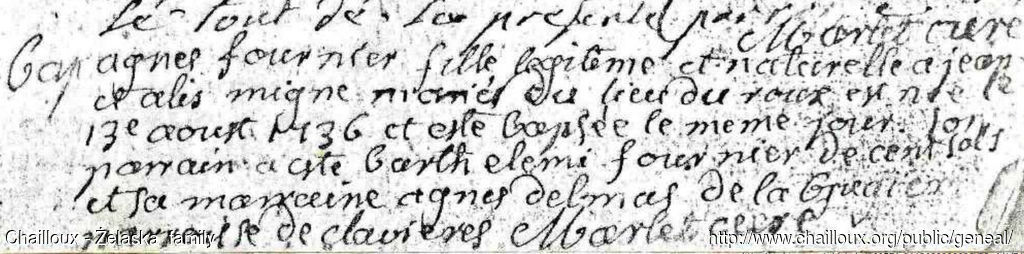 Le tout de la presente par
Marlet cure
Bap agnes fournier fille legiteme et naturelle a jean
et alis migne mariés du lieu du roux est née le
13e aoust 1736 et este bapsée le meme jour. son
parrain a este barthelemi fournier de cent sols
et sa marraine agnes delmas de la
paroisse de clavieres Marlet cure
Chailloux - Želaska family
http://www.chailloux.org/public/geneal/